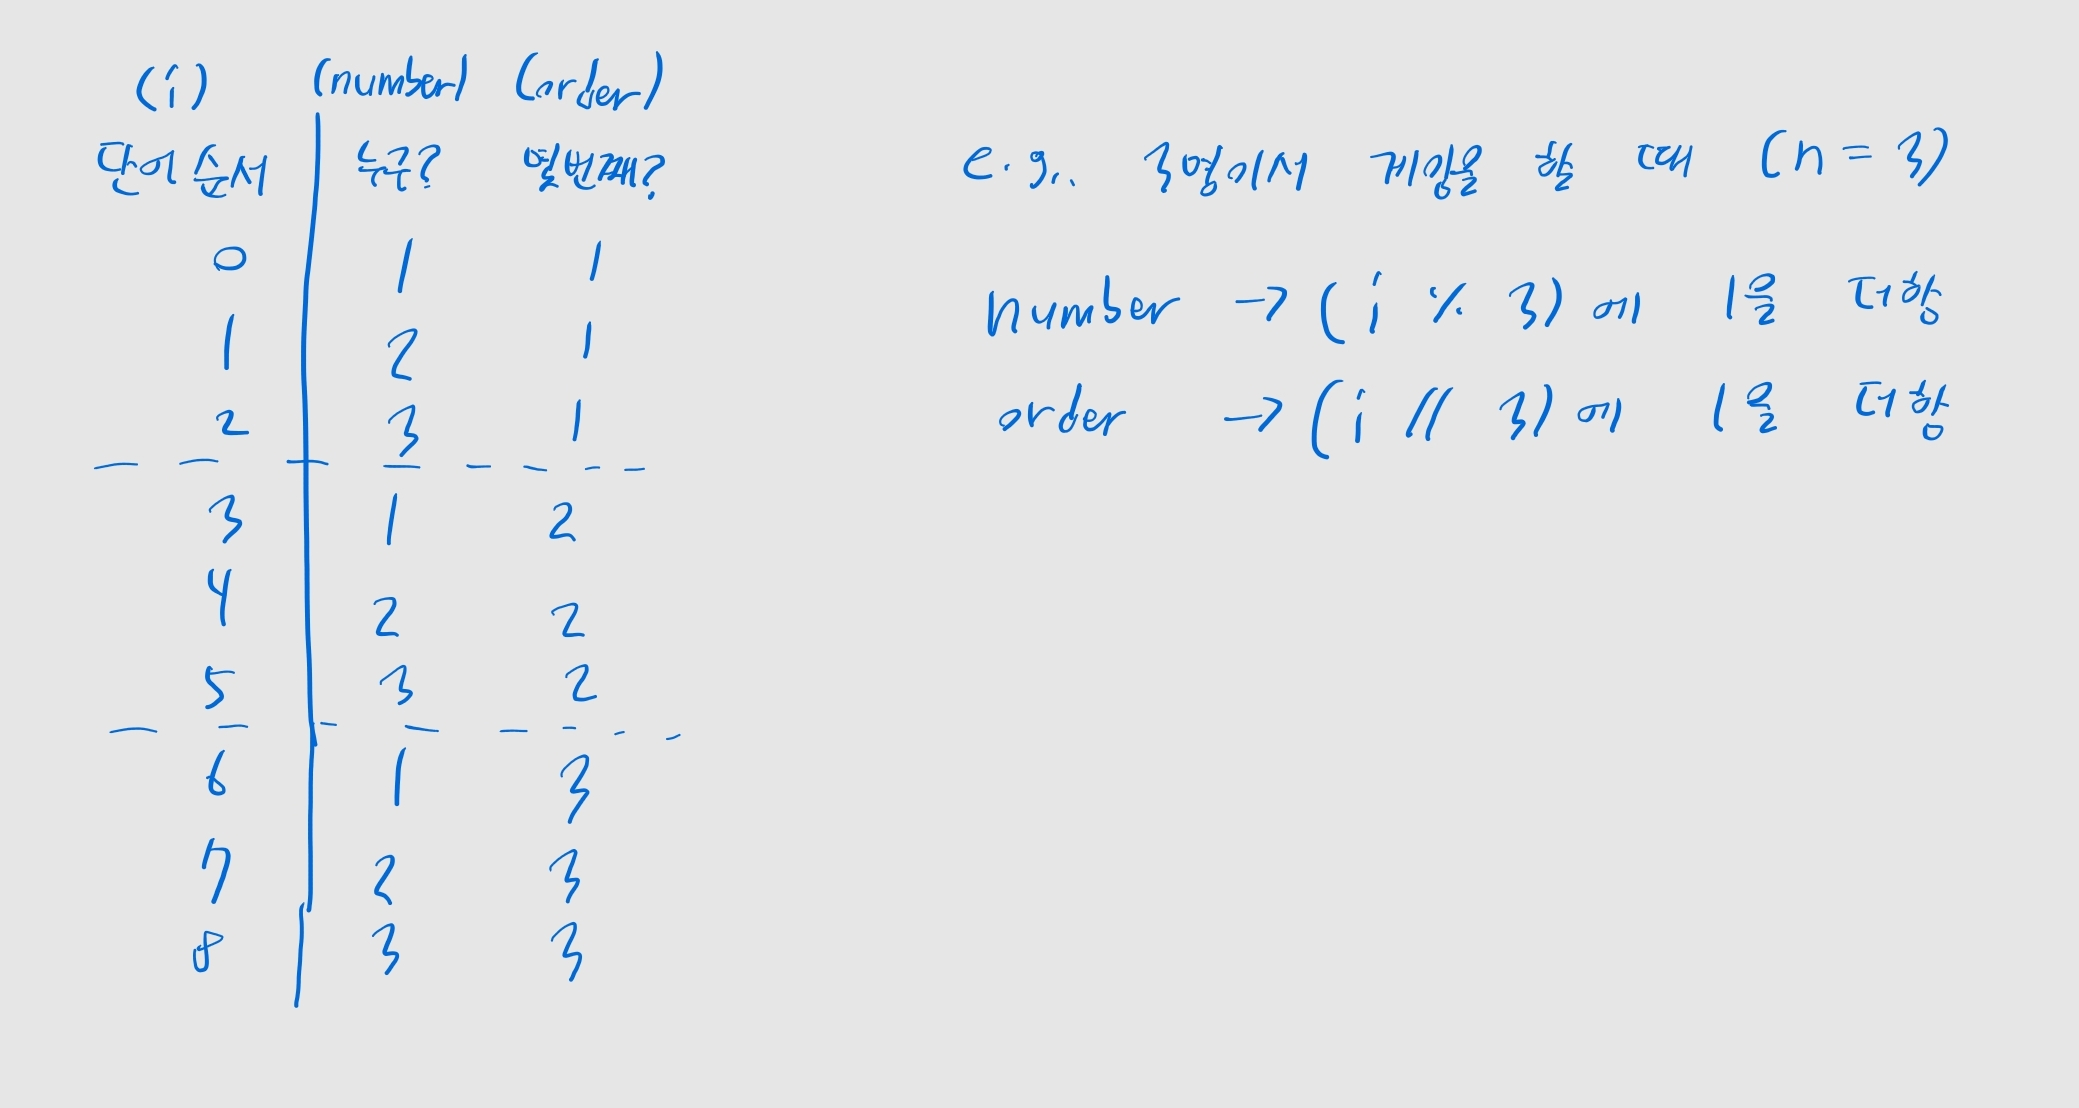 (i) (number) (order)
단어 순서 누구? 몇번째?
0 1 1
1 2 1
2 3 1
3 1 2
4 2 2
5 3 2
6 1 3
7 2 3
8 3 3
e.g.. 3명이서 게임을 할 때 (n = 3)
number → (i % 3) 에 1을 더함
order → (i // 3) 에 1을 더함